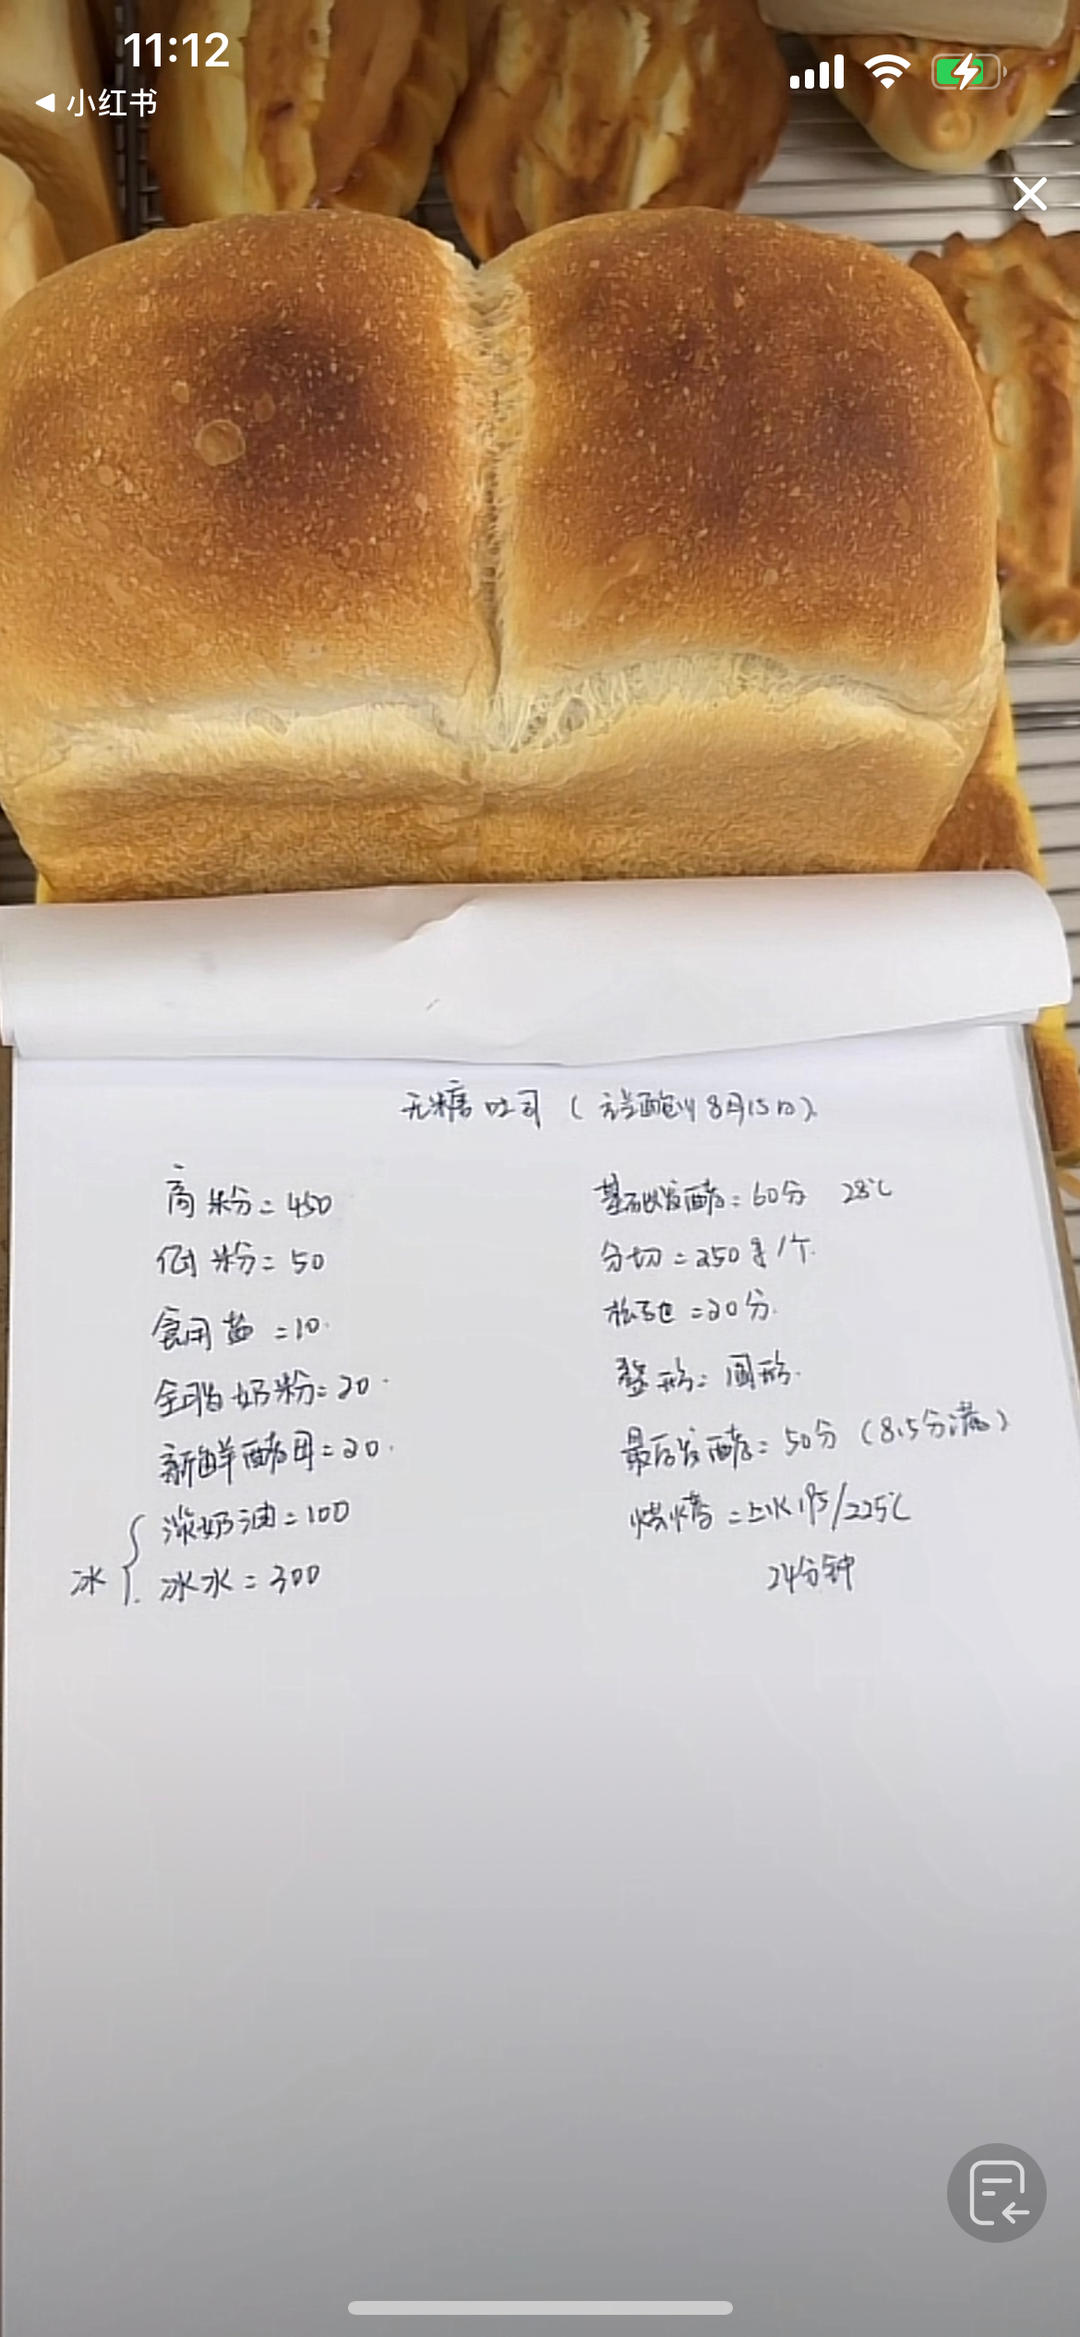 11:12
小红书
无糖吐司 ( 8月15日)
高粉=450
低粉=50
食用盐=10
全脂奶粉=20
新鲜酵母=20
淡奶油=100
冰 冰水=300
基础发酵=60分 28℃
分切=250克/个
松弛=20分
整形=圆形
最后发酵=50分 (8.5分满)
烘烤=上火195/225℃
24分钟